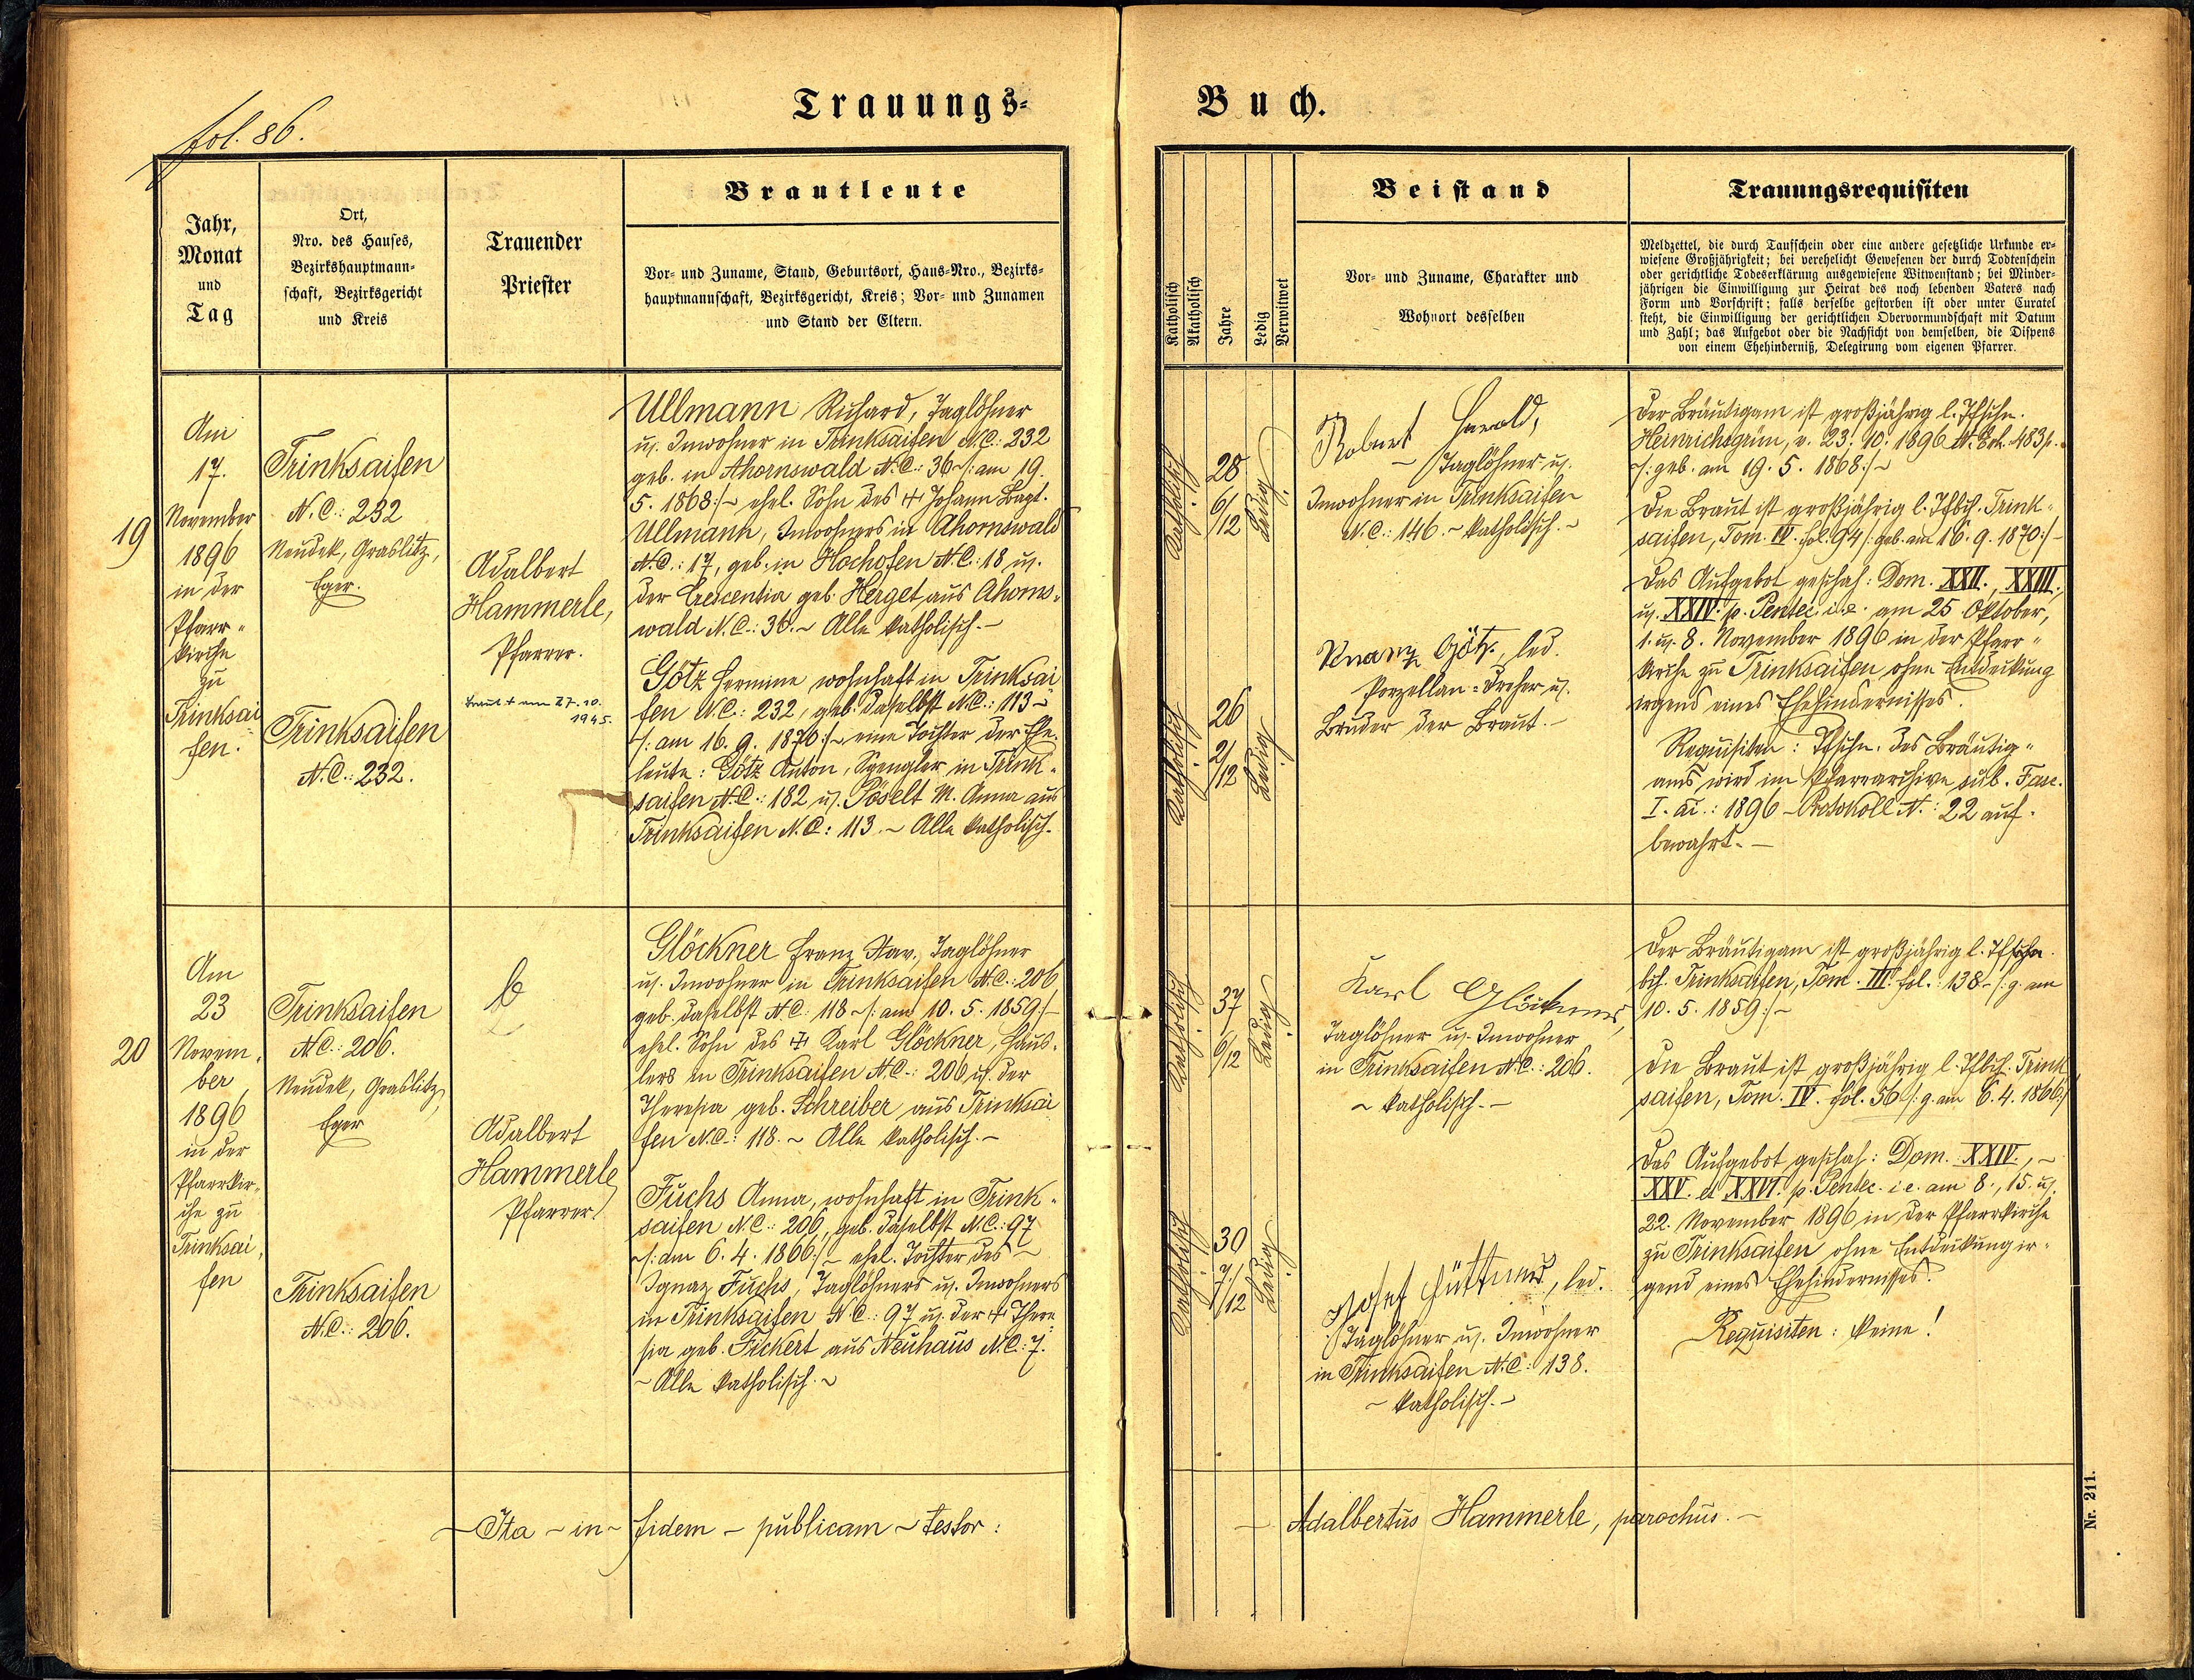 fol. 86.
Trauungs-
Buch.
Jahr,
Monat
und
Tag
Ort,
Nro. des Hauses,
Bezirkshauptmann-
schaft, Bezirksgericht
und Kreis
Trauender
Priester
Brautleute
Vor- und Zuname, Stand, Geburtsort, Haus-Nro., Bezirks-
hauptmannschaft, Bezirksgericht, Kreis; Vor- und Zunamen
und Stand der Eltern.
Katholisch
Akatholisch
Jahre
Ledig
Verwitwet
Beistand
Vor- und Zuname, Charakter und
Wohnort desselben
Trauungsrequisiten
Meldzettel, die durch Taufschein oder eine andere gesetzliche Urkunde er-
wiesene Großjährigkeit; bei verehelicht Gewesenen der durch Todtenschein
oder gerichtliche Todeserklärung ausgewiesene Witwenstand; bei Minder-
jährigen die Einwilligung zur Heirat des noch lebenden Vaters nach
Form und Vorschrift; falls derselbe gestorben ist oder unter Curatel
steht, die Einwilligung der gerichtlichen Obervormundschaft mit Datum
und Zahl; das Aufgebot oder die Nachsicht von demselben, die Dispens
von einem Ehehinderniß, Delegirung vom eigenen Pfarrer.
19
Am
17.
November
1896
in der
Pfarr-
kirche
zu
Trinksai
fen.
Trinksaifen
N.C.: 232
Neudek, Graslitz,
Eger.
Trinksaifen
N.C.: 232.
Adalbert
Hammerle,
Pfarrer.
Braut + am 27.10.
1945.
Ullmann Richard, Taglöhner
u. Inwohner in Trinksaifen N.C.: 232
geb. in Ahornswald N.C.: 36 ~/: am 19.
5. 1868:/~ ehel. Sohn des + Johann Bapt.
Ullmann, Inwohners in Ahornswald
N.C.: 17, geb. in Hochofen N.C.: 18 u.
der Crescentia geb. Herget aus Ahorns-
wald N.C.: 36. ~ Alle katholisch. ~
Götz Hermine wohnhaft in Trinksai
fen N.C.: 232, geb. daselbst N.C.: 113 ~
/: am 16. 9. 1870:/~ eine Tochter der Ehe-
leute: Götz Anton, Spengler in Trink-
saifen N.C.: 182 u. Pöselt M. Anna aus
Trinksaifen N.C: 113. ~ Alle katholisch.
Katholisch
28
6/12
Ledig
Katholisch
26
2/12
Ledig
Robert Harald,
~ Taglöhner u.
Inwohner in Trinksaifen
N.C.: 146. ~ katholisch. ~
Götz, led.
Porzellan-Dreher u.
Bruder der Braut. ~
Der Bräutigam ist großjährig l. Tfschn.
Heinrichsgrün, v. 23. 10. 1896 483 p.
/: geb. am 19. 5. 1868:/~
Die Braut ist großjährig l. Tfbch. Trink-
saifen, Tom. IV. fol. 94 /: geb. am 16. 9. 1870:/~
Das Aufgebot geschah: Dom. XXII., XXIII.
u. XXIV. p. Pentec. i.e. am 25. Oktober,
1. u. 8. November 1896 in der Pfarr-
kirche zu Trinksaifen ohne Entdeckung
irgend eines Ehehindernisses.
Requisiten: Tfschn. des Bräutig-
ams wird im Pfarrarchive sub. Fasc.
I. ai.: 1896 – Protokoll N.: 22 auf-
bewahrt. –
20
Am
23
Novem-
ber
1896
in der
Pfarrkir-
che zu
Trinksai
fen
Trinksaifen
N.C.: 206.
Neudek, Graslitz,
Eger
Trinksaifen
N.C.: 206.
Adalbert
Hammerle
Pfarrer.
Glöckner Franz Xav., Taglöhner
u. Inwohner in Trinksaifen N.C.: 206,
geb. daselbst N.C: 118 ~/: am 10. 5. 1859:/~
ehel. Sohn des + Karl Glöckner, Häus-
lers in Trinksaifen N.C.: 206 u. der
Theresia geb. Schreiber aus Trinksai
fen N.C.: 118. ~ Alle katholisch. ~
Fuchs Anna, wohnhaft in Trink-
saifen N.C.: 206, geb. daselbst N.C.: 97
~/: am 6. 4. 1866:/~ ehel. Tochter des ~
Ignaz Fuchs, Taglöhners u. Inwohners
in Trinksaifen N.C.: 97 u. der + There-
sia geb. Fickert aus Neuhaus N.C.: 7.
~ Alle katholisch. ~
Katholisch
37
6/12
Ledig
Katholisch
30
7/12
Ledig
Karl Glöckner,
Taglöhner u. Inwohner
in Trinksaifen N.C.: 206.
~ katholisch. ~
Josef Hüttner, led.
Taglöhner u. Inwohner
in Trinksaifen N.C.: 138.
~ katholisch. ~
Der Bräutigam ist großjährig l.
bch. Trinksaifen, Tom. III. fol.: 138 ~/: g. am
10. 5. 1859:/~
Die Braut ist großjährig l. Tfbch. Trink
saifen, Tom. IV. fol. 56 /: g. am 6. 4. 1866:/
Das Aufgebot geschah: Dom. XXIV., ~
XXV. et XXVI. p. Pentec. i.e. am 8., 15. u.
22. November 1896 in der Pfarrkirche
zu Trinksaifen ohne Entdeckung ir-
gend eines Ehehindernisses.
Requisiten: keine!
~ Ita ~ in ~ fidem ~ publicam ~ testor:
~ Adalbertus Hammerle, parochus. ~
Nr. 211.